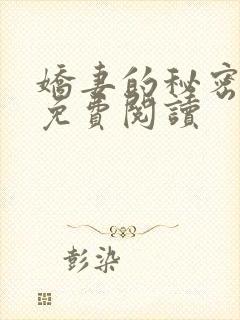 嬌妻的秘密
免費閱讀
彭染